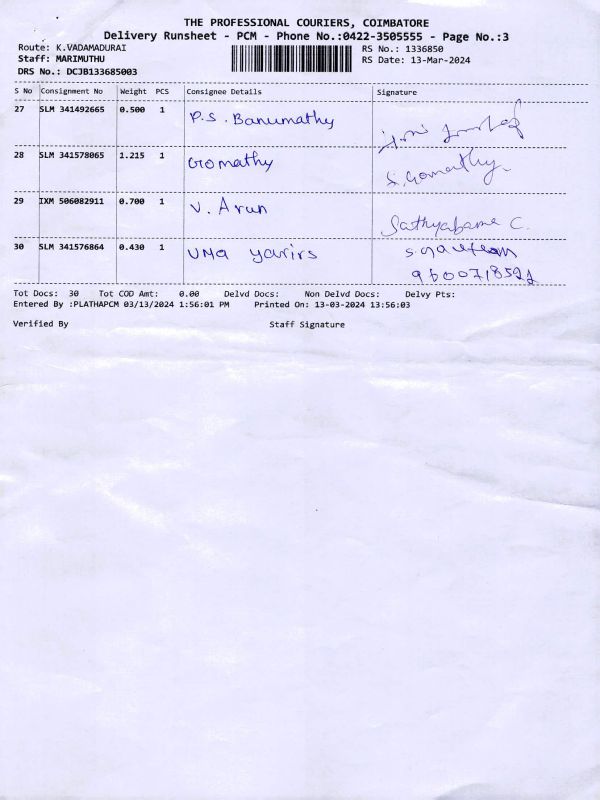 THE PROFESSIONAL COURIERS, COIMBATORE
Delivery Runsheet - PCM - Phone No.:0422-3505555 - Page No.:3
Route: K.VADAMADURAI RS No.: 1336850
Staff: MARIMUTHU RS Date: 13-Mar-2024
DRS No.: DCJB133685003
S No Consignment No Weight PCS Consignee Details Signature
27 SLM 341492665 0.500 1 P.S. Banumathy
28 SLM 341578065 1.215 1 Gomathy S. Gomathy.
29 IXM 506082911 0.700 1 V. Arun Sathyabama C.
30 SLM 341576864 0.430 1 UMA yarirs
Tot Docs: 30 Tot COD Amt: 0.00 Delvd Docs: Non Delvd Docs: Delvy Pts:
Entered By :PLATHAPCM 03/13/2024 1:56:01 PM Printed On: 13-03-2024 13:56:03
Verified By Staff Signature